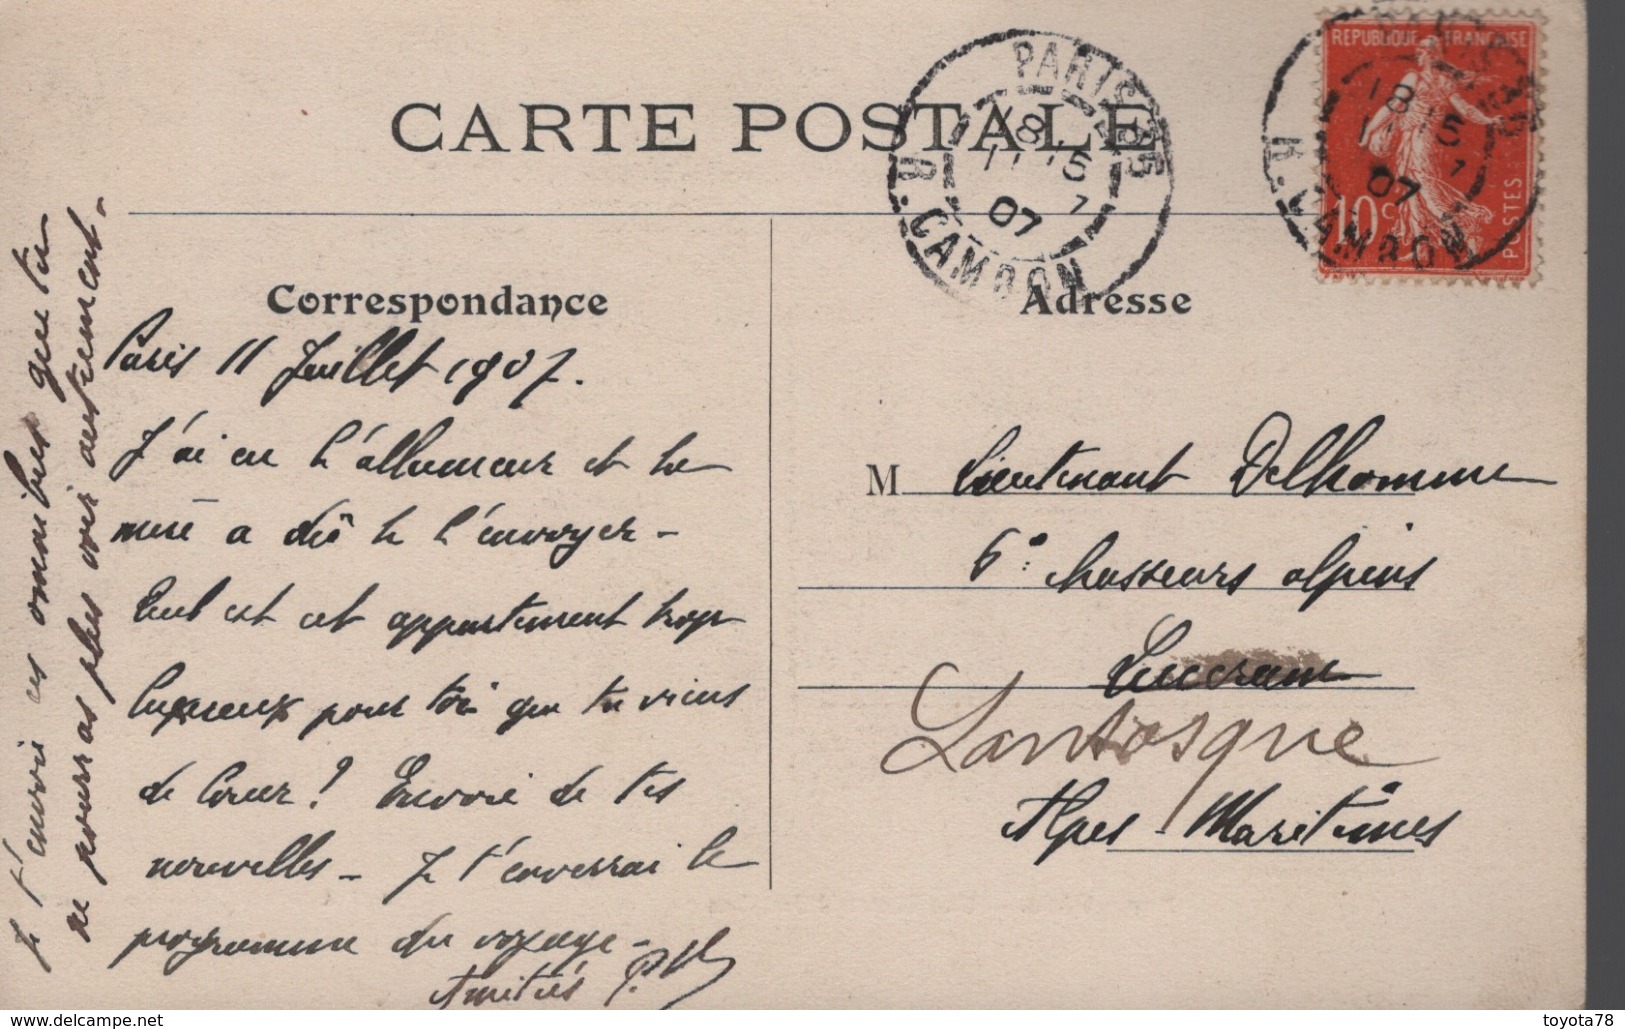 CARTE POSTALE
PARIS 35
18 15
11 7
07
R. CAMBON
REPUBLIQUE FRANÇAISE
10 c
POSTES
PARIS 35
18 15
11 7
07
R. CAMBON
Correspondance
Adresse
Paris 11 Juillet 1907.
J'ai eu l'allumeur et le
mere a dû te l'envoyer -
est cet appartement trop
luxueux pour toi que tu viens
de louer? Envoie de tes
nouvelles - Je t'enverrai le
programme du voyage -
Amitiés
Je t'envoie ces omnibus que tu
ne pourras plus voir autrement -
M Lieutenant Delhomme
6e chasseurs alpins
Lantosque
Alpes-Maritimes
delcampe.net
toyota78